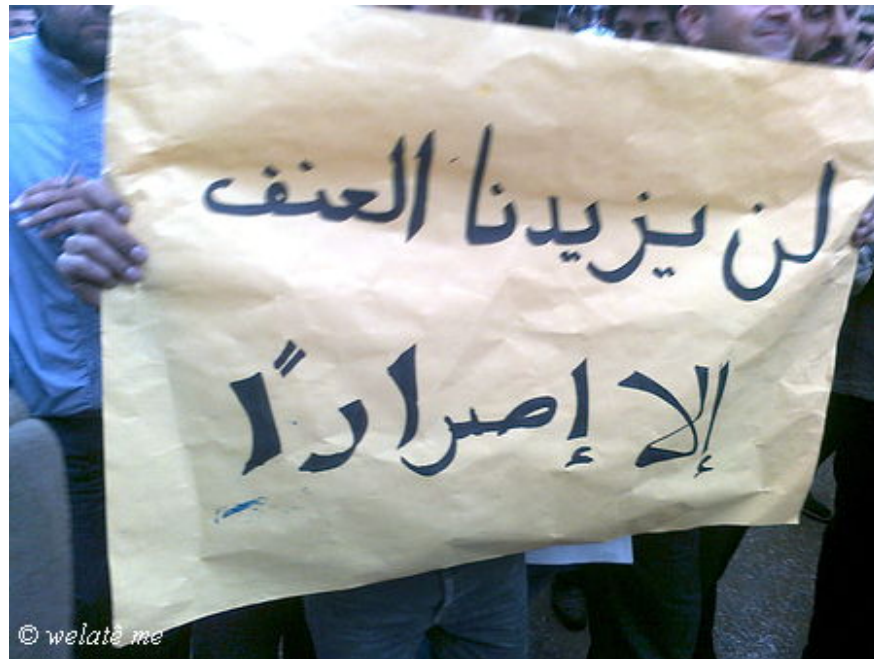 لن يزيدنا العنف
إلا إصراراً
© welatê me